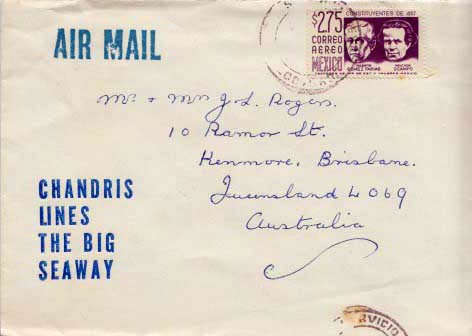 AIR MAIL
$2.75
CORREO
AEREO
MEXICO
CONSTITUYENTES DE 1857
VALENTIN
GOMEZ FARIAS
MELCHOR
OCAMPO
Mr. + Mrs J.L. Rogers.
10 Ramor St.
Kenmore, Brisbane.
Queensland 4069
Australia
CHANDRIS
LINES
THE BIG
SEAWAY